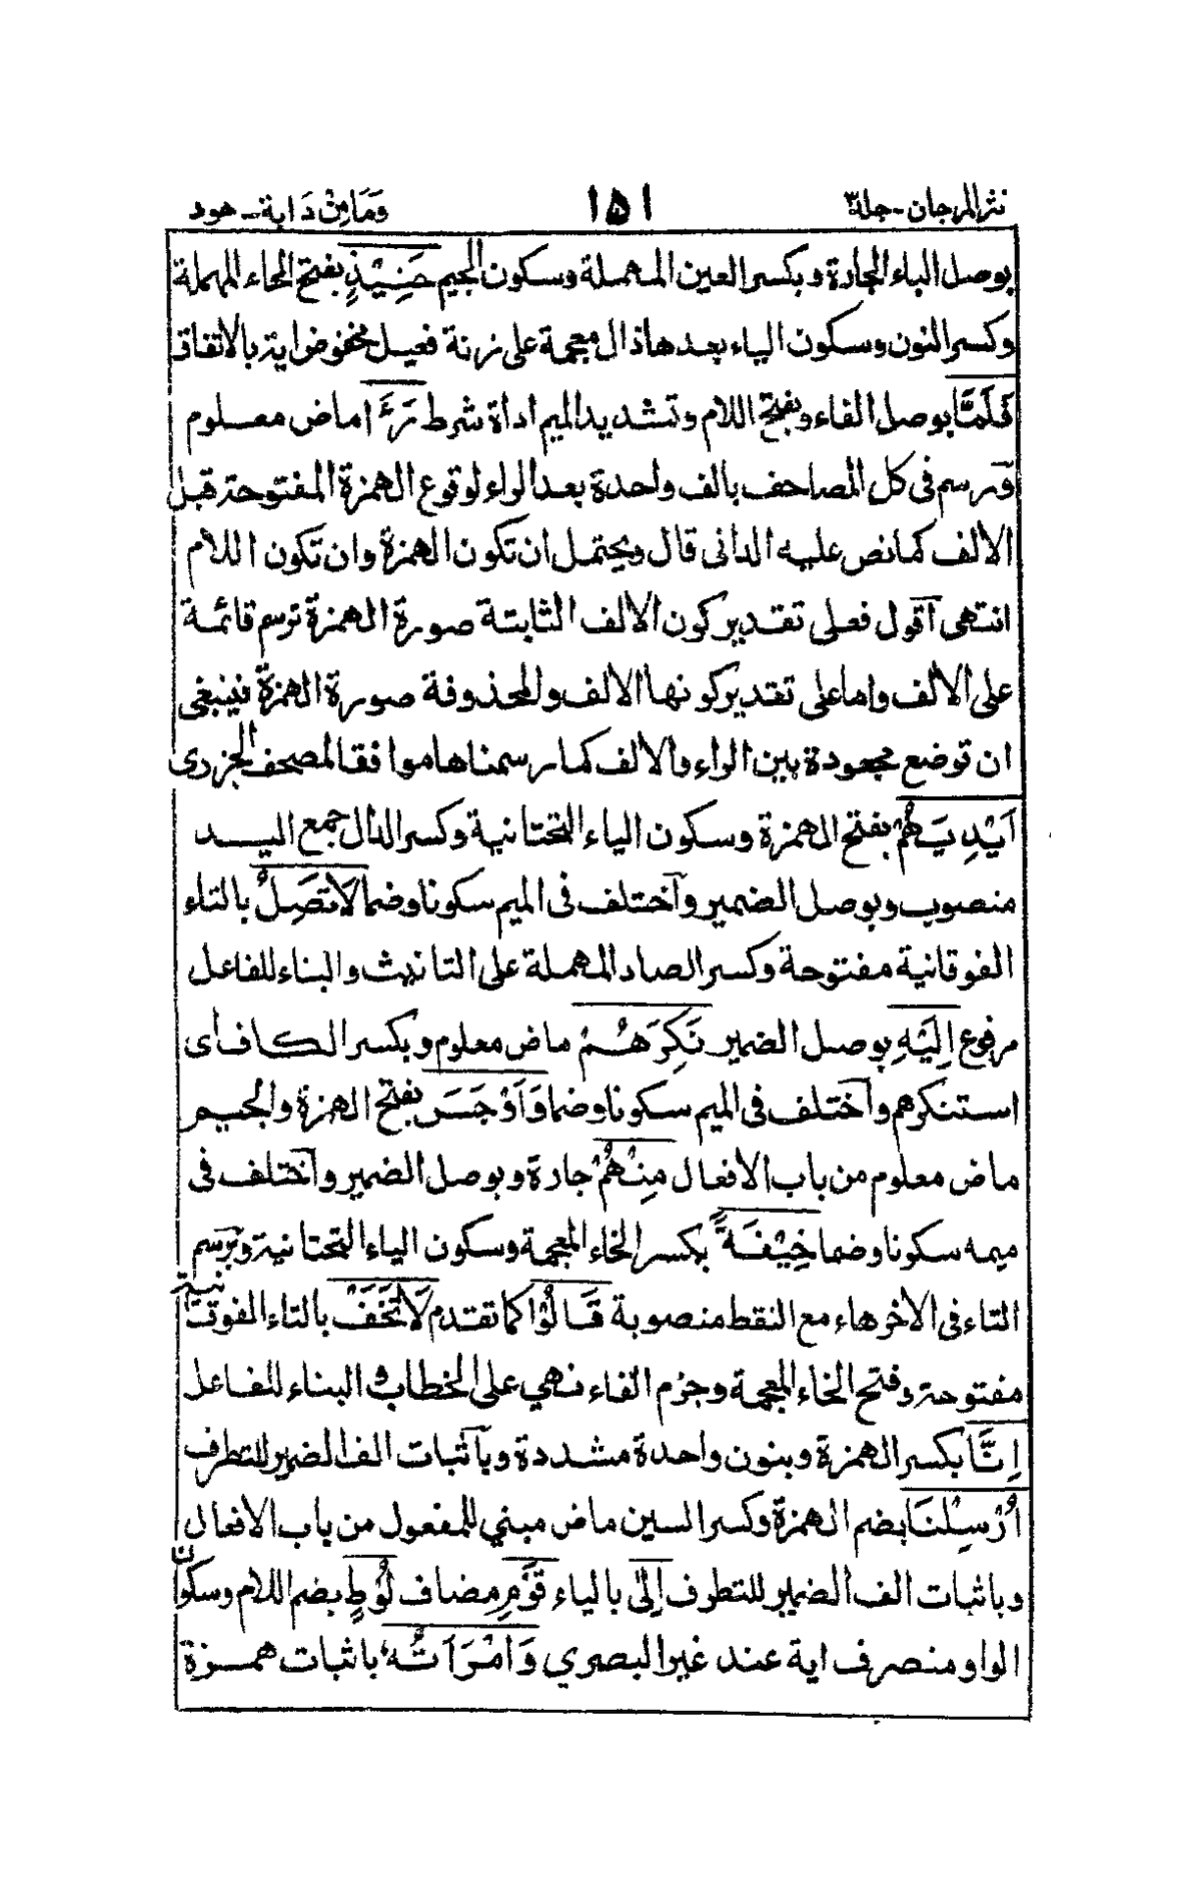 نثر المرجان - جلد ٣
١٥١
وَمَا مِنْ دَابة - هود
بوصل الباء الجارة وبكسر العين المهملة وسكون الجيم حَنِيْذٍ بفتح الحاء المهملة
وكسر النون وسكون الياء بعدها ذال معجمة على زنة فعيل مخفوض اية بالاتفاق
فَلَمَّا بوصل الفاء وبفتح اللام وتشديد الميم اداة شرط رَءَا ماض معلوم
ورسم فى كل المصاحف بالف واحدة بعد الراء لوقوع الهمزة المفتوحة قبل
الالف كما نص عليه الدانى قال ويحتمل ان تكون الهمزة وان تكون اللام
انتهى آقول فعلى تقدير كون الالف الثابتة صورة الهمزة ترسم قائمة
على الالف واما على تقدير كونها الالف والمحذوفة صورة الهمزة فينبغى
ان توضع مجعودة بين الراء والالف كما رسمناها موافقا لمصحف الجزرى
اَيْدِيَهُمْ بفتح الهمزة وسكون الياء التحتانية وكسر الدال جمع اليد
منصوب وبوصل الضمير وآختلف فى الميم سكونا وضما لَاتَصِلُ بالتاء
الفوقانية مفتوحة وكسر الصاد المهملة على التانيث والبناء للفاعل
مرفوع اِلَيْهِ بوصل الضمير نَكِرَهُمْ ماض معلوم وبكسر الكاف اى
استنكرهم وآختلف فى الميم سكونا وضما وَاَوْجَسَ بفتح الهمزة والجيم
ماض معلوم من باب الافعال مِنْهُمْ جارة وبوصل الضمير وآختلف فى
ميمه سكونا وضما خِيْفَةً بكسر الخاء المعجمة وسكون الياء التحتانية وبرسم
التاء فى الاخر هاء مع النقط منصوبة قَالُوْا كما تقدم لَاتَخَفْ بالتاء الفوقانية
مفتوحة وفتح الخاء المعجمة وجزم الفاء نهي على الخطاب والبناء للفاعل
اِنَّا بكسر الهمزة وبنون واحدة مشددة وبآثبات الف الضمير للتطرف
اُرْسِلْنَا بضم الهمزة وكسر السين ماض مبني للمفعول من باب الافعال
وباثبات الف الضمير للتطرف اِلٰى بالياء قَوْمِ مضاف لُوْطٍ بضم اللام وسكون
الواو منصرف اية عند غير البصري وَامْرَاَتُهٗ باثبات همزة